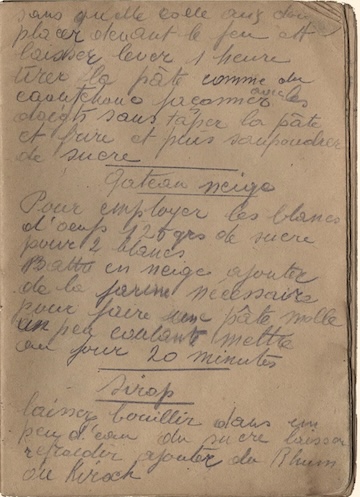 sans qu'elle colle aux doi
placer devant le feu et
laisser lever 1 heure
tirer la pâte comme du
caoutchouc façonner avec les
doigts sans taper la pâte
et faire et puis saupoudrer
de sucre
Gateau neige
Pour employer les blancs
d'oeufs 125 grs de sucre
pour 2 blancs
Batto en neige ajouter
de la farine nécessaire
pour faire une pâte molle
un peu coulante mettre
au four 20 minutes
Sirop
laissez bouillir dans un
peu d'eau du sucre laisser
refroidir ajouter du Rhum
du Kirsch